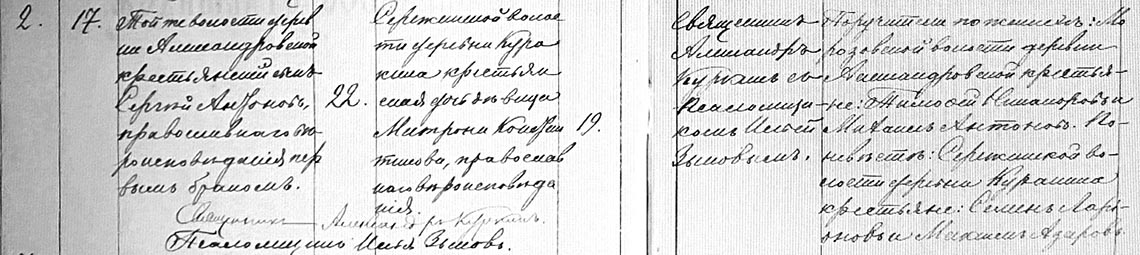 2.
17.
Той же волости дерев
ни Александровской
крестьянскій сынъ
Сергѣй Антоновъ,
православнаго вѣ
роисповѣданія пер
вымъ бракомъ.
22.
волос
ти деревни Кура
кина крестьян
ская дочь дѣвица
Матрона
православ
наго вѣроисповѣда
нія.
19.
Священникъ
Александръ
съ
Псаломщи-
комъ Ильей
Зыковымъ.
Поручители по женихѣ: Мо
розовской волости деревни
Александровской крестья-
не: Тимофей и
Михаилъ Антоновъ. По
невѣстѣ: во-
лости деревни
крестьяне: Семенъ Ларі
оновъ и Максимъ Азаровъ
Священникъ Александръ
Псаломщикъ Илья Зыковъ.